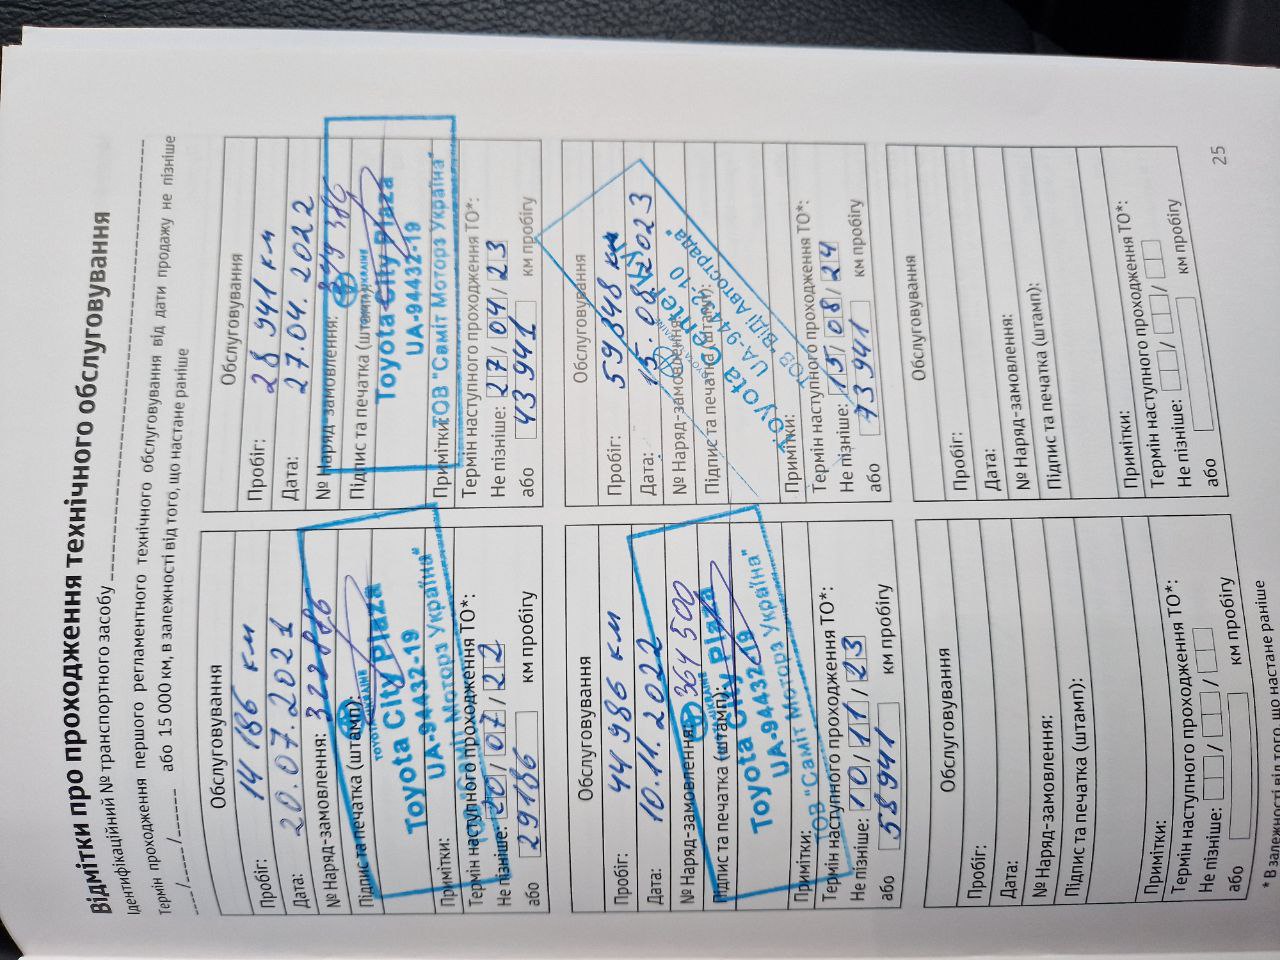 Відмітки про проходження технічного обслуговування
Ідентифікаційний № транспортного засобу
Термін проходження першого регламентного технічного обслуговування від дати продажу не пізніше
___/___/______ або 15 000 км, в залежності від того, що настане раніше
Обслуговування
Пробіг: 14 186 км
Дата: 20.07.2021
№ Наряд-замовлення:
Підпис та печатка (штамп):
TOYOTA UKRAINE
Toyota City Plaza
UA-94432-19
ТОВ "Саміт Моторз Україна"
Примітки:
Термін наступного проходження ТО*:
Не пізніше: 20/07/22
або 29186 км пробігу
Обслуговування
Пробіг: 28 941 км
Дата: 27.04.2022
№ Наряд-замовлення:
Підпис та печатка (штамп):
TOYOTA UKRAINE
Toyota City Plaza
UA-94432-19
ТОВ "Саміт Моторз Україна"
Примітки:
Термін наступного проходження ТО*:
Не пізніше: 27/04/23
або 43941 км пробігу
Обслуговування
Пробіг: 44 986 км
Дата: 10.11.2022
№ Наряд-замовлення: 364 500
Підпис та печатка (штамп):
UKRAINE
Toyota City Plaza
UA-94432-19
ТОВ "Саміт Моторз Україна"
Примітки:
Термін наступного проходження ТО*:
Не пізніше: 10/11/23
або 58941 км пробігу
Обслуговування
Пробіг: 59 848 км
Дата: 15.08.2023
№ Наряд-замовлення:
Підпис та печатка (штамп):
Toyota Center
UA-94432-10
ТОВ "ВіДі Автострада"
Примітки:
Термін наступного проходження ТО*:
Не пізніше: 15/08/24
або 73941 км пробігу
Обслуговування
Пробіг:
Дата:
№ Наряд-замовлення:
Підпис та печатка (штамп):
Примітки:
Термін наступного проходження ТО*:
Не пізніше:
або км пробігу
Обслуговування
Пробіг:
Дата:
№ Наряд-замовлення:
Підпис та печатка (штамп):
Примітки:
Термін наступного проходження ТО*:
Не пізніше:
або км пробігу
* В залежності від того, що настане раніше
25